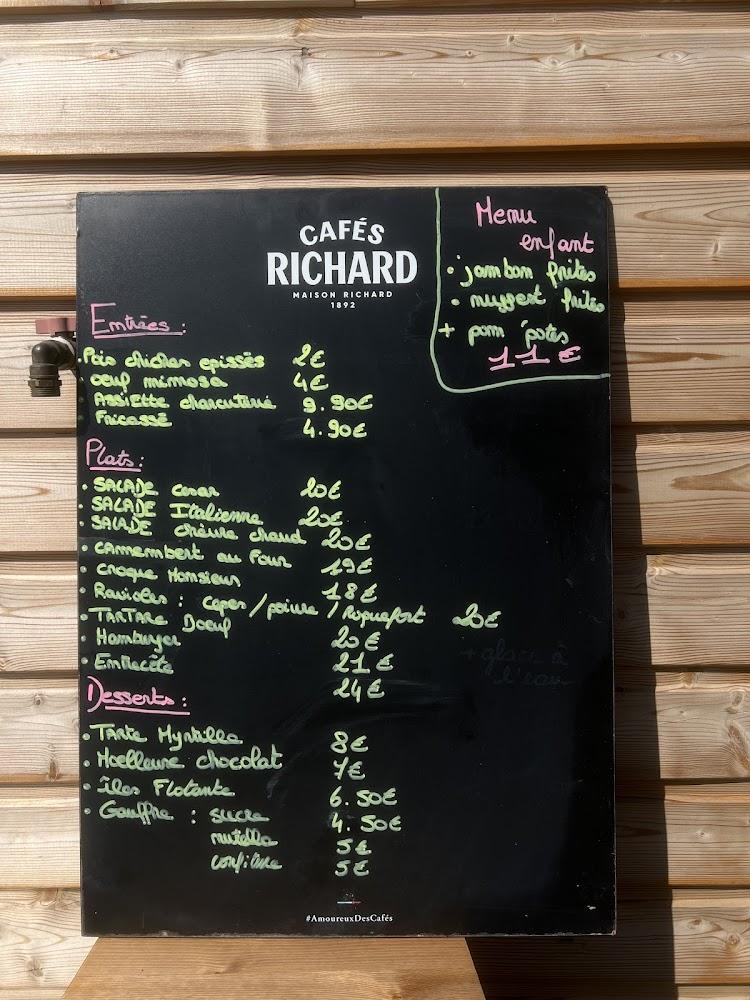 CAFÉS
RICHARD
MAISON RICHARD
1892
Menu
enfant
• jambon frites
• nugget frites
+ pom'potes
11€
Entrées :
• Pois chiches epissés 2€
• oeuf mimosa 4€
• Assiette charcuterie 9.90€
• Fricassé 4.90€
Plats :
• SALADE cesar 20€
• SALADE Italienne 20€
• SALADE chèvre chaud 20€
• camembert au four 19€
• Croque Monsieur 18€
• Ravioles : cepes / poivre / Roquefort 20€
• TARTARE Boeuf 20€
• Hamburger 21€
• Entrecôte 24€
+ glace à
l'eau
Desserts :
• Tarte Myrtille 8€
• Moelleux chocolat 7€
• Îles Flotante 6.50€
• Gauffre : sucre 4.50€
nutella 5€
confiture 5€
#AmoureuxDesCafés